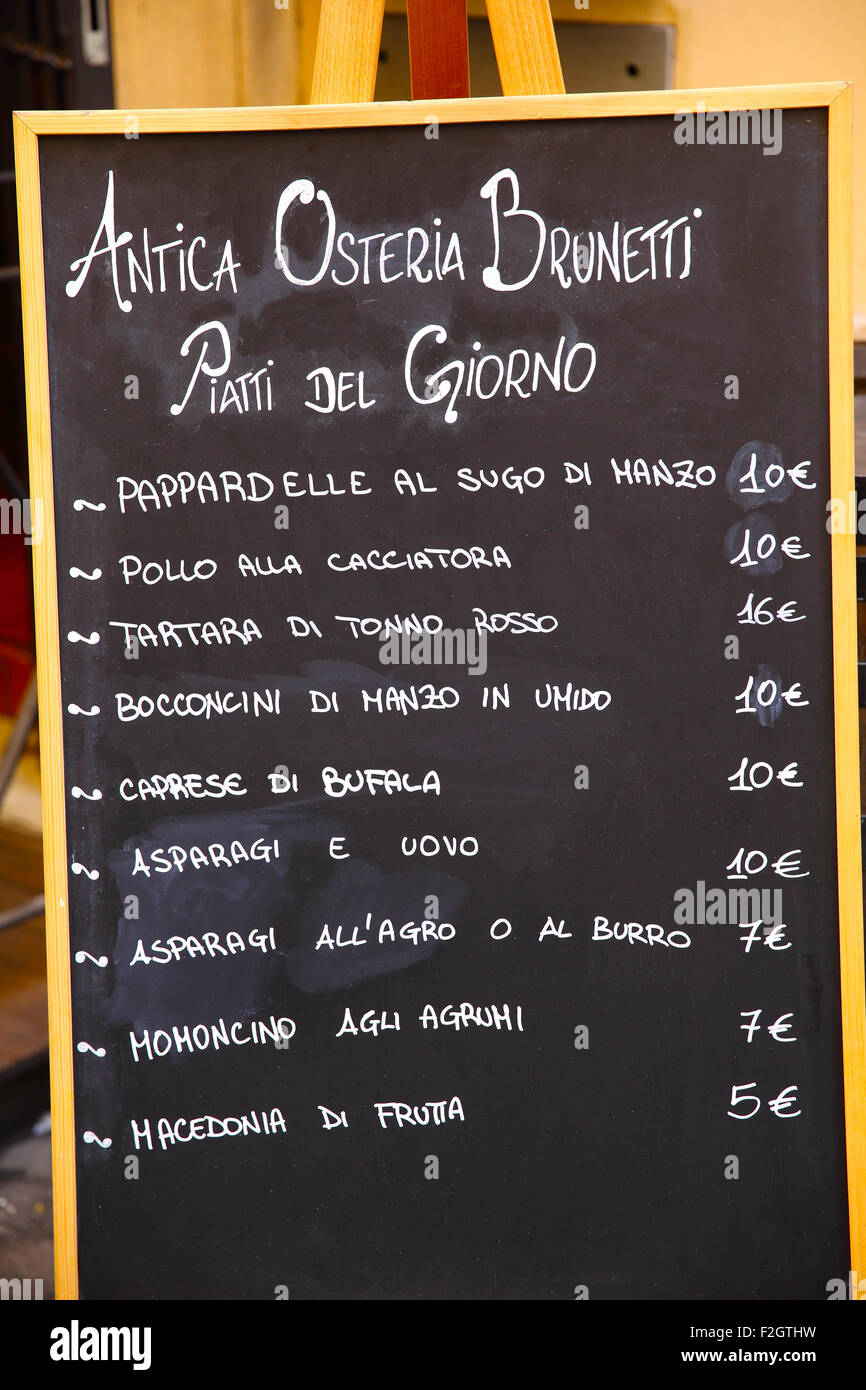 Antica Osteria Brunetti
Piatti del Giorno
~ PAPPARDELLE AL SUGO DI MANZO 10€
~ POLLO ALLA CACCIATORA 10€
~ TARTARA DI TONNO ROSSO 16€
~ BOCCONCINI DI MANZO IN UMIDO 10€
~ CAPRESE DI BUFALA 10€
~ ASPARAGI E UOVO 10€
~ ASPARAGI ALL'AGRO O AL BURRO 7€
~ MOMONCINO AGLI AGRUMI 7€
~ MACEDONIA DI FRUTTA 5€
alamy
Image ID: F2GTHW
www.alamy.com